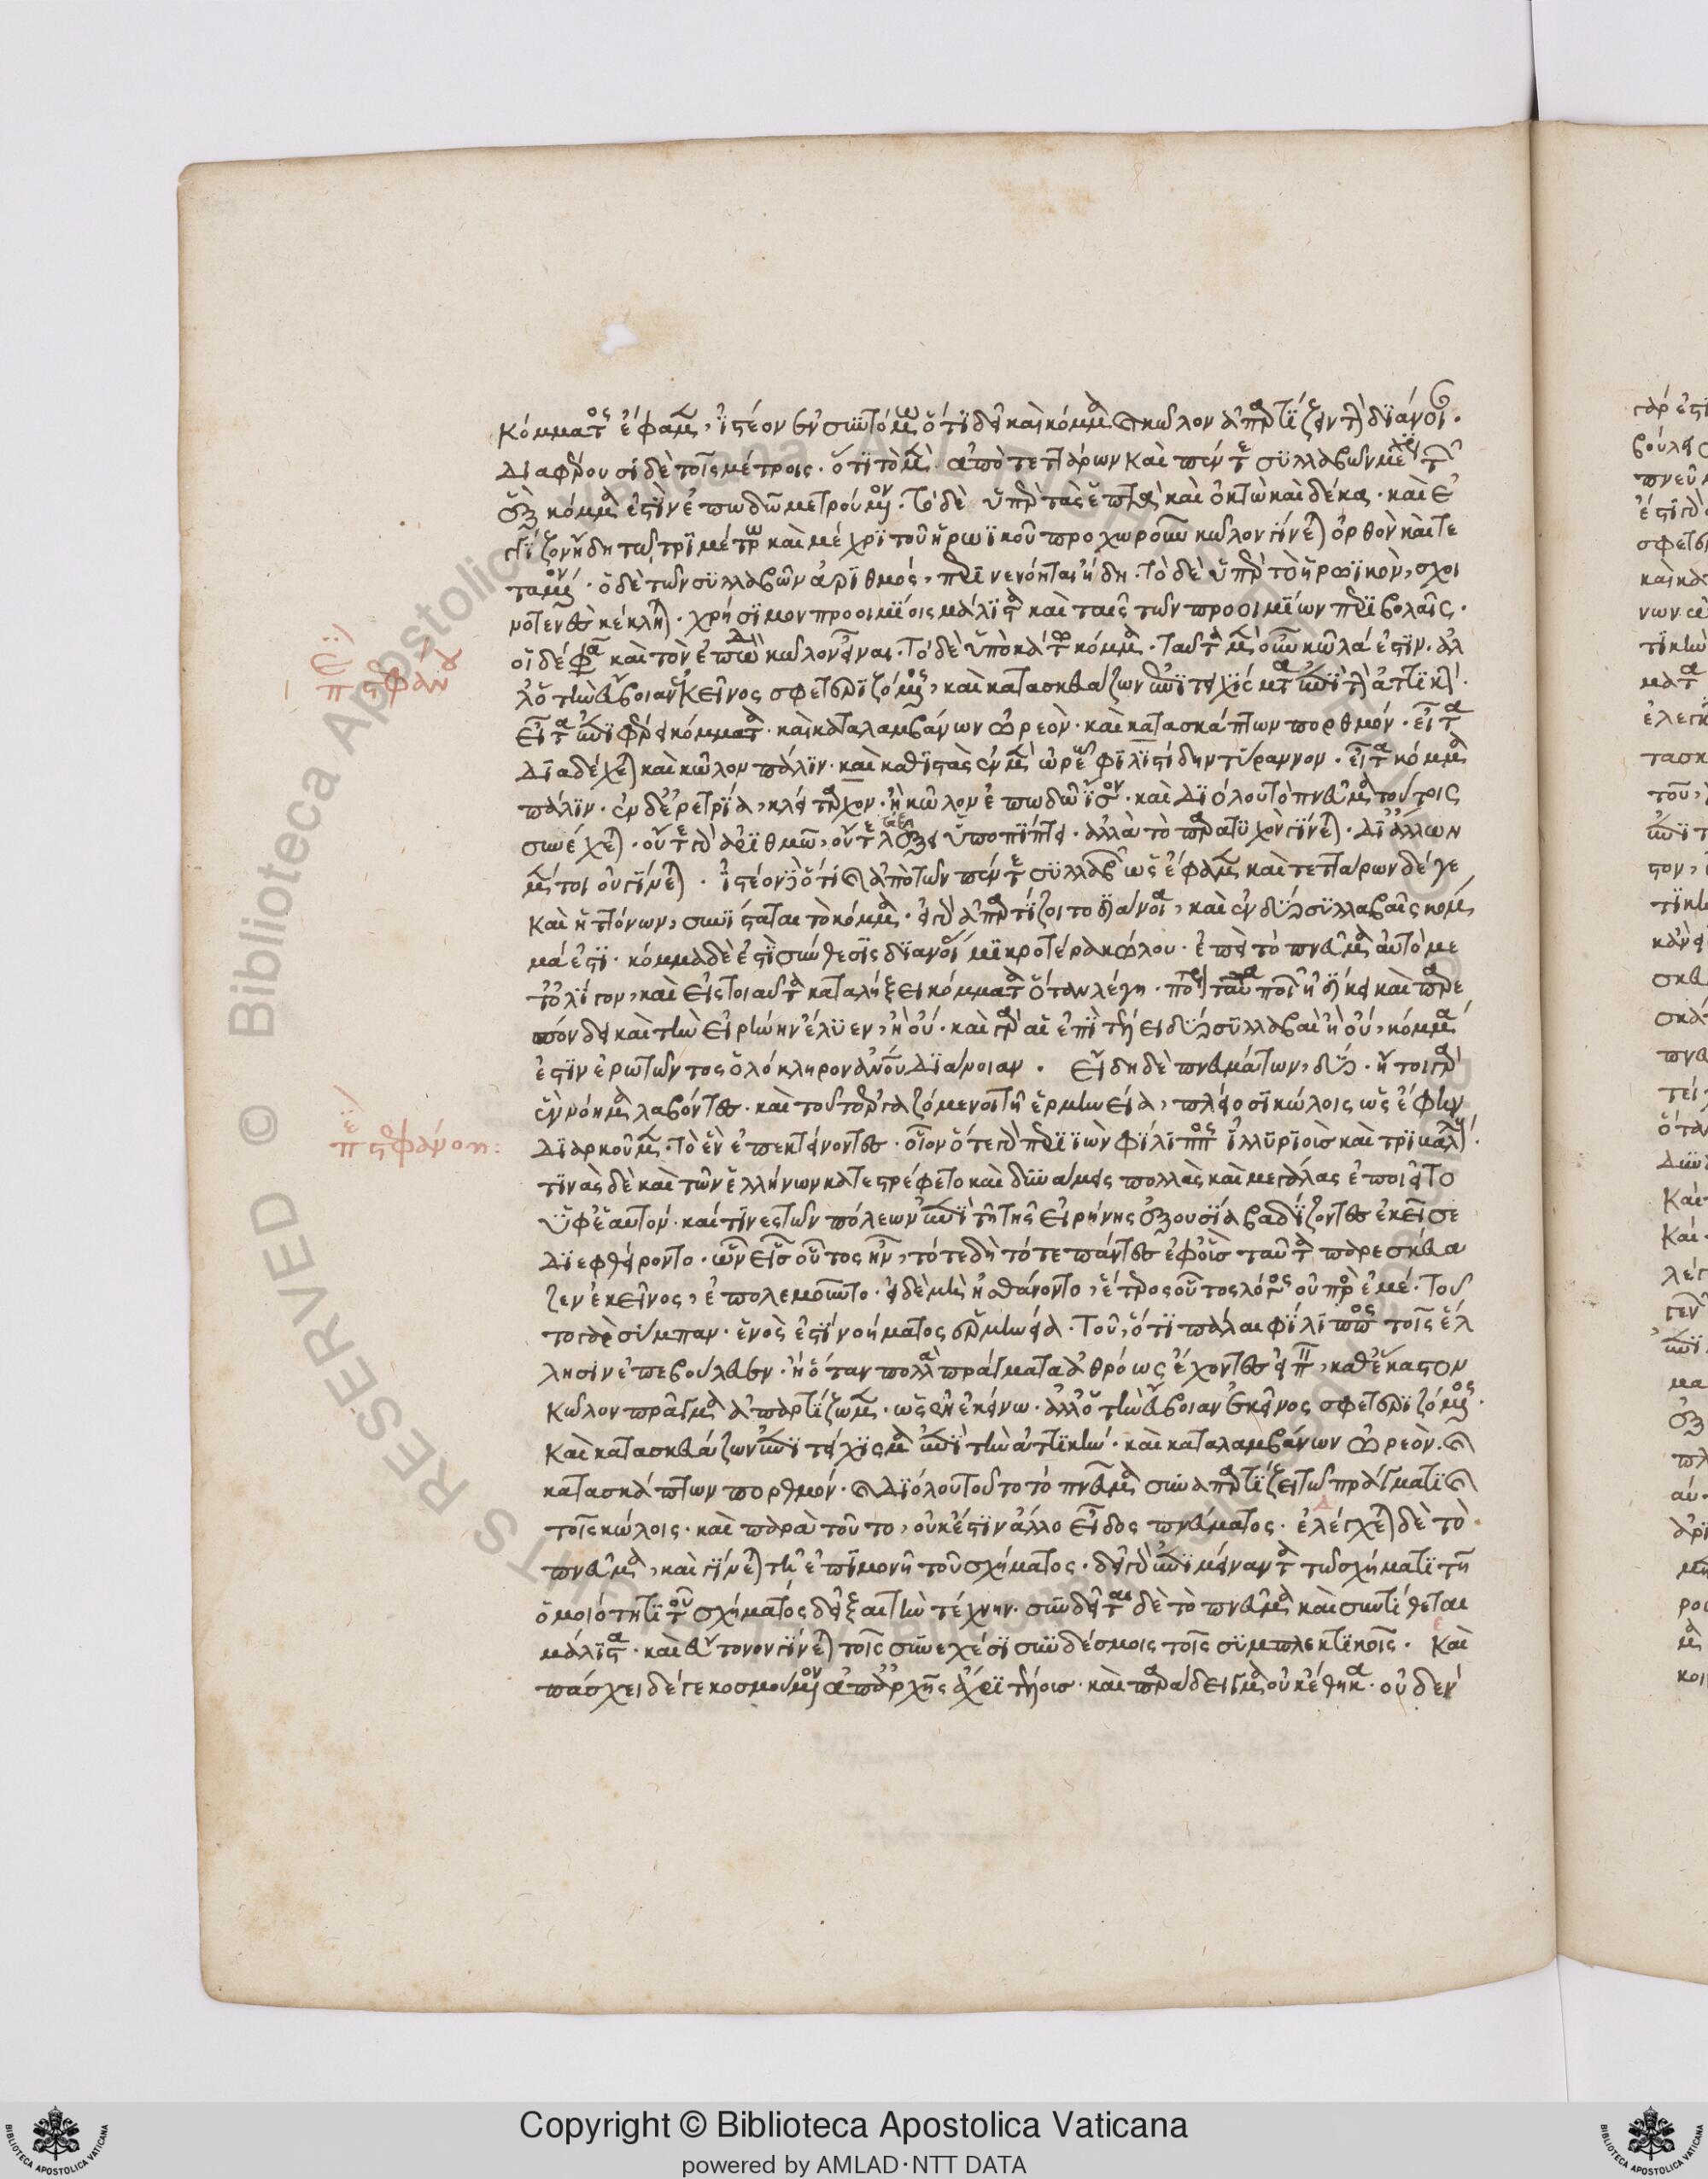 κόμματος ἔφαμεν, ἰστέον ἐν συντόμῳ ὅτι δεῖ καὶ κόμμα καὶ κῶλον ἀπαρτίζειν τὴν διάνοιαν.
διαφέρουσι δὲ τοῖς μέτροις. ὅτι τὸ μὲν ἀπὸ τεττάρων καὶ πέντε συλλαβῶν
κόμμα ἐστὶν ἐπωδῷ μετρούμενον. τὸ δὲ ὑπὲρ τὰς ἑπτὰ καὶ ὀκτὼ καὶ δέκα. καὶ ἐγ
γίζον ἤδη τῷ τριμέτρῳ καὶ μέχρι τοῦ ἡρωϊκοῦ προχωροῦν κῶλον γίνεται ὀρθὸν καὶ τε
ταμένον. ὁ δὲ τῶν συλλαβῶν ἀριθμός, περινενόηται ἤδη. τὸ δὲ ὑπὲρ τὸ ἡρωϊκὸν, σχοι
νοτενὲς κέκληται. χρήσιμον προοιμίοις μάλιστα καὶ ταῖς τῶν προοιμίων περιβολαῖς.
οἶδέ φαμεν καὶ τὸν ἐπῳδὸν κῶλον εἶναι. τὸ δὲ ὑποκάτω κόμμα. ταῦτα μὲν οὖν κῶλά ἐστιν. ἀλ
λ' ὁ τὴν εὔβοιαν ἐκεῖνος σφετεριζόμενος, καὶ κατασκευάζων ἐπιτείχισμα ἐπὶ τὴν ἀττικήν.
εἶτα ἐπιφέρει κόμματα. καὶ καταλαμβάνων ὠρεὸν. καὶ κατασκάπτων πορθμόν. εἶτα
διαδέχεται καὶ κῶλον πάλιν. καὶ καθιστὰς ἐν μὲν ὠρεῷ φιλιστίδην τύραννον. εἶτα κόμμα
πάλιν. ἐν δ' ἐρετρίᾳ, κλείταρχον. ἢ κῶλον ἐπωδῷ ἴσον. καὶ διόλου τὸ πνεῦμα τούτοις
συνέχεται. οὔτε γὰρ ἀριθμῷ, οὔτε τάξει ὑποπίπτει. ἀλλὰ τὸ παρατυχὸν γίνεται. δι' ἄλλων
μέντοι οὐ γίνεται. ἰστέον ὅτι καὶ ἀπὸ τῶν πέντε συλλαβῶν ὡς ἔφαμεν καὶ τεττάρων δέ γε
καὶ ἡττόνων, συνίσταται τὸ κόμμα. εἰ γὰρ ἀπαρτίζοιτο διάνοια, καὶ ἐν δύο συλλαβαῖς κόμ
μά ἐστι. κόμμα δὲ ἐστὶ σύνθεσις διανοίας μικροτέρα κώλου. ἐπεὶ τὸ πνεῦμα αὐτὸ με
τ' ὀλίγον, καὶ εἰς τοιαῦτα καταλήξει κόμματα ὅταν λέγῃ. πότερον ταῦτα ποιῶν ἠδίκει καὶ παρε
σπόνδει καὶ τὴν εἰρήνην ἔλυεν, ἢ οὔ. καὶ γὰρ αἱ ἐπὶ τέλει δύο συλλαβαὶ ἢ οὔ, κόμμα
ἐστὶν ἐρωτῶντος ὁλόκληρον ἀπὸ διάνοιαν. εἴδη δὲ πνευμάτων, δύο. ἤτοι γὰρ
ἓν νόημα λαβόντες. καὶ τοῦτο ἐργαζόμενοι τῇ ἑρμηνείᾳ, πλείοσι κώλοις ὡς ἔφην
διαρκοῦμεν. τὸ ἓν ἐπεκτείνοντες. οἷον ὅτε γὰρ περιιὼν φίλιππος ἰλλυριοὺς καὶ τριβαλλούς.
τινὰς δὲ καὶ τῶν ἑλλήνων κατεστρέφετο καὶ δυνάμεις πολλὰς καὶ μεγάλας ἐποιεῖτο
ὑφ' ἑαυτόν. καί τινες τῶν πόλεων ἐπὶ τῇ τῆς εἰρήνης ἐξουσίᾳ βαδίζοντες ἐκεῖσε
διεφθείροντο. ὧν εἷς οὗτος ἦν, τότε δὴ τότε πάντες ἐφ' οὓς ταῦτα παρεσκευά
ζεν ἐκεῖνος, ἐπολεμοῦντο. εἰ δὲ μὴ ᾐσθάνοντο, ἕτερος οὗτος λόγος οὐ πρὸς ἐμέ. τοῦ
το γὰρ σύμπαν. ἑνὸς ἐστὶ νοήματος ἑρμηνεία. τοῦ, ὅτι πάλαι φίλιππος τοῖς ἕλ
λησιν ἐπεβούλευεν. ἢ ὅταν πολλὰ πράγματα ἀθρόως ἔχοντες εἰπεῖν, καθ' ἕκαστον
κῶλον πρᾶγμα ἀπαρτίζωμεν. ὡς ἐν ἐκείνῳ. ἀλλ' ὁ τὴν εὔβοιαν ἐκεῖνος σφετεριζόμενος.
καὶ κατασκευάζων ἐπιτείχισμα ἐπὶ τὴν ἀττικήν. καὶ καταλαμβάνων ὠρεόν. καὶ
κατασκάπτων πορθμόν. καὶ διόλου τοῦτο τὸ πνεῦμα συναπαρτίζει τῷ πράγματι καὶ
τοῖς κώλοις. καὶ παρὰ τοῦτο, οὐκ ἔστιν ἄλλο εἶδος πνεύματος. ἐλέγχεται δὲ τὸ
πνεῦμα, καὶ γίνεται τῇ ἐπιμονῇ τοῦ σχήματος. δεῖ γὰρ ἐπιμείναντα τῷ σχήματι τῇ
ὁμοιότητι τοῦ σχήματος δεῖξαι τὴν τέχνην. συνδεῖται δὲ τὸ πνεῦμα καὶ συντίθεται
μάλιστα. καὶ εὔτονον γίνεται τοῖς συνεχέσι συνδέσμοις τοῖς συμπλεκτικοῖς. Καὶ
πάσχει δέ γε κοσμούμενον ἀπ' ἀρχῆς ἄχρι τέλους. καὶ παράδειγμα οὐκ ἔθηκα. οὐδὲν